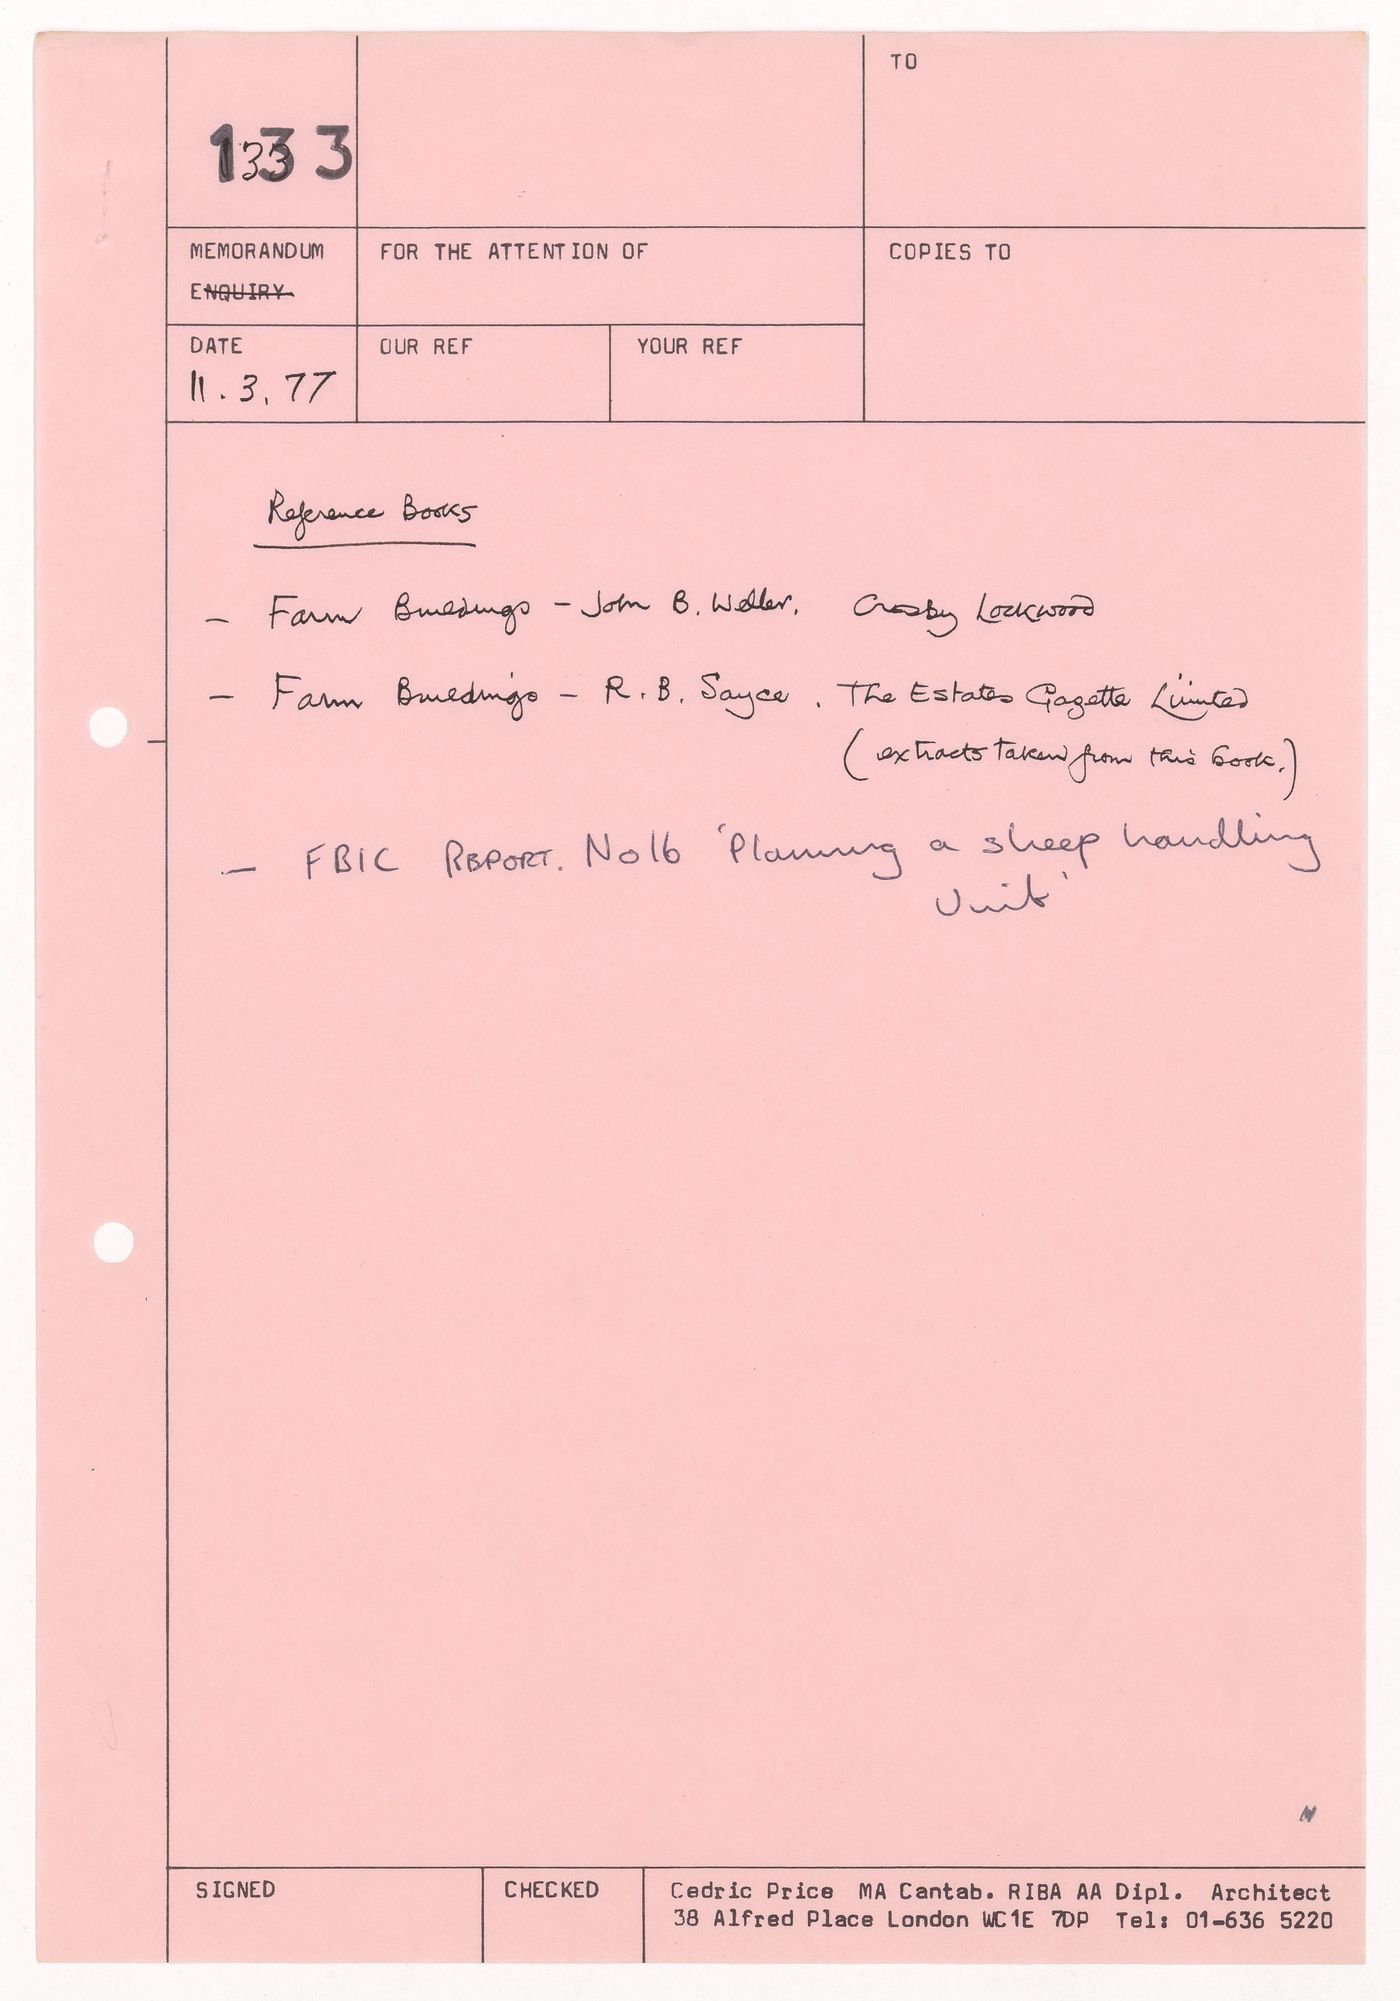 TO
133
133
MEMORANDUM
FOR THE ATTENTION OF
COPIES TO
ENQUIRY
DATE
OUR REF
YOUR REF
11.3.77
Reference Books
- Farm Buildings - John B. Weller. Crosby Lockwood
- Farm Buildings - R.B. Sayce. The Estates Gazette Limited
(extracts taken from this book.)
- FBIC REPORT. No16 'Planning a sheep handling
Unit'
N
SIGNED
CHECKED
Cedric Price MA Cantab. RIBA AA Dipl. Architect
38 Alfred Place London WC1E 7DP Tel: 01-636 5220